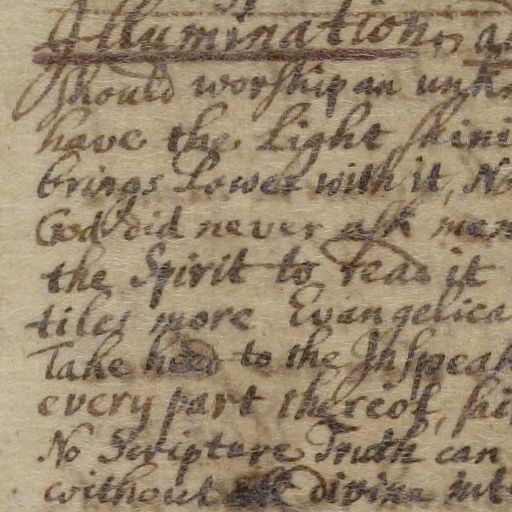 Illumination,
should worship an
have the Light
brings Power with it, No
God did never ask men
the Spirit to read it
tiles more Evangelica
Take heed to the Inspeak
every part thereof,
No Scripture Truth can
without divine